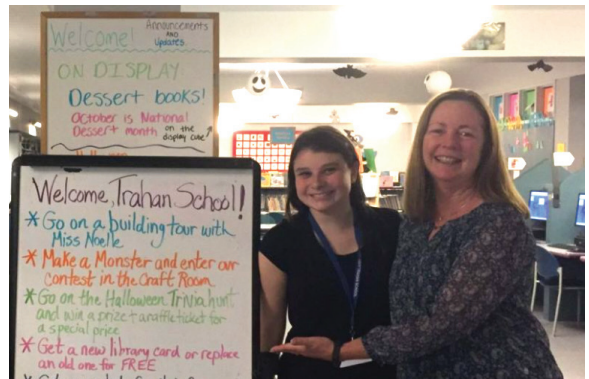 Welcome!
Announcements
AND
Updates
ON DISPLAY
Dessert books!
October is National
Dessert month
on the
display case
Welcome, Trahan School!
* Go on a building tour with
Miss Noelle
* Make a Monster and enter our
contest in the Craft Room
* Go on the Halloween Trivia hunt
and win a prize + a raffle ticket for
a special price
* Get a new library card or replace
an old one for FREE